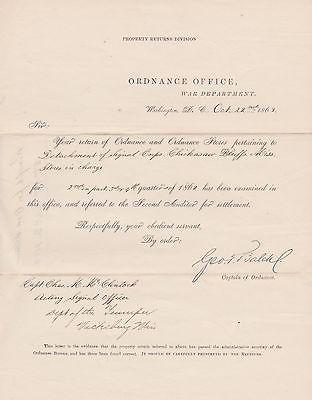 PROPERTY RETURNS DIVISION
ORDNANCE OFFICE,
WAR DEPARTMENT,
Washington D. C. Oct. 22nd 1863.
Sir:
Your return of Ordnance and Ordnance Stores pertaining to
Detachment of Signal Corps, Chickasaw Bluffs Miss.
Stores in charge
for 2nd in part, 3 & 4th quarter of 1862 has been examined in
this office, and referred to the Second Auditor for settlement.
Respectfully, your obedient servant,
By order:
Geo. T. Balch
Captain of Ordnance.
Capt Chas. M. McClintock
Acting Signal Officer
Dept of the Tennessee
Vicksburg Miss
This letter is the evidence that the property return referred to above has passed the administrative scrutiny of the
Ordnance Bureau, and has been found correct. IT SHOULD BE CAREFULLY PRESERVED BY THE RECEIVER.